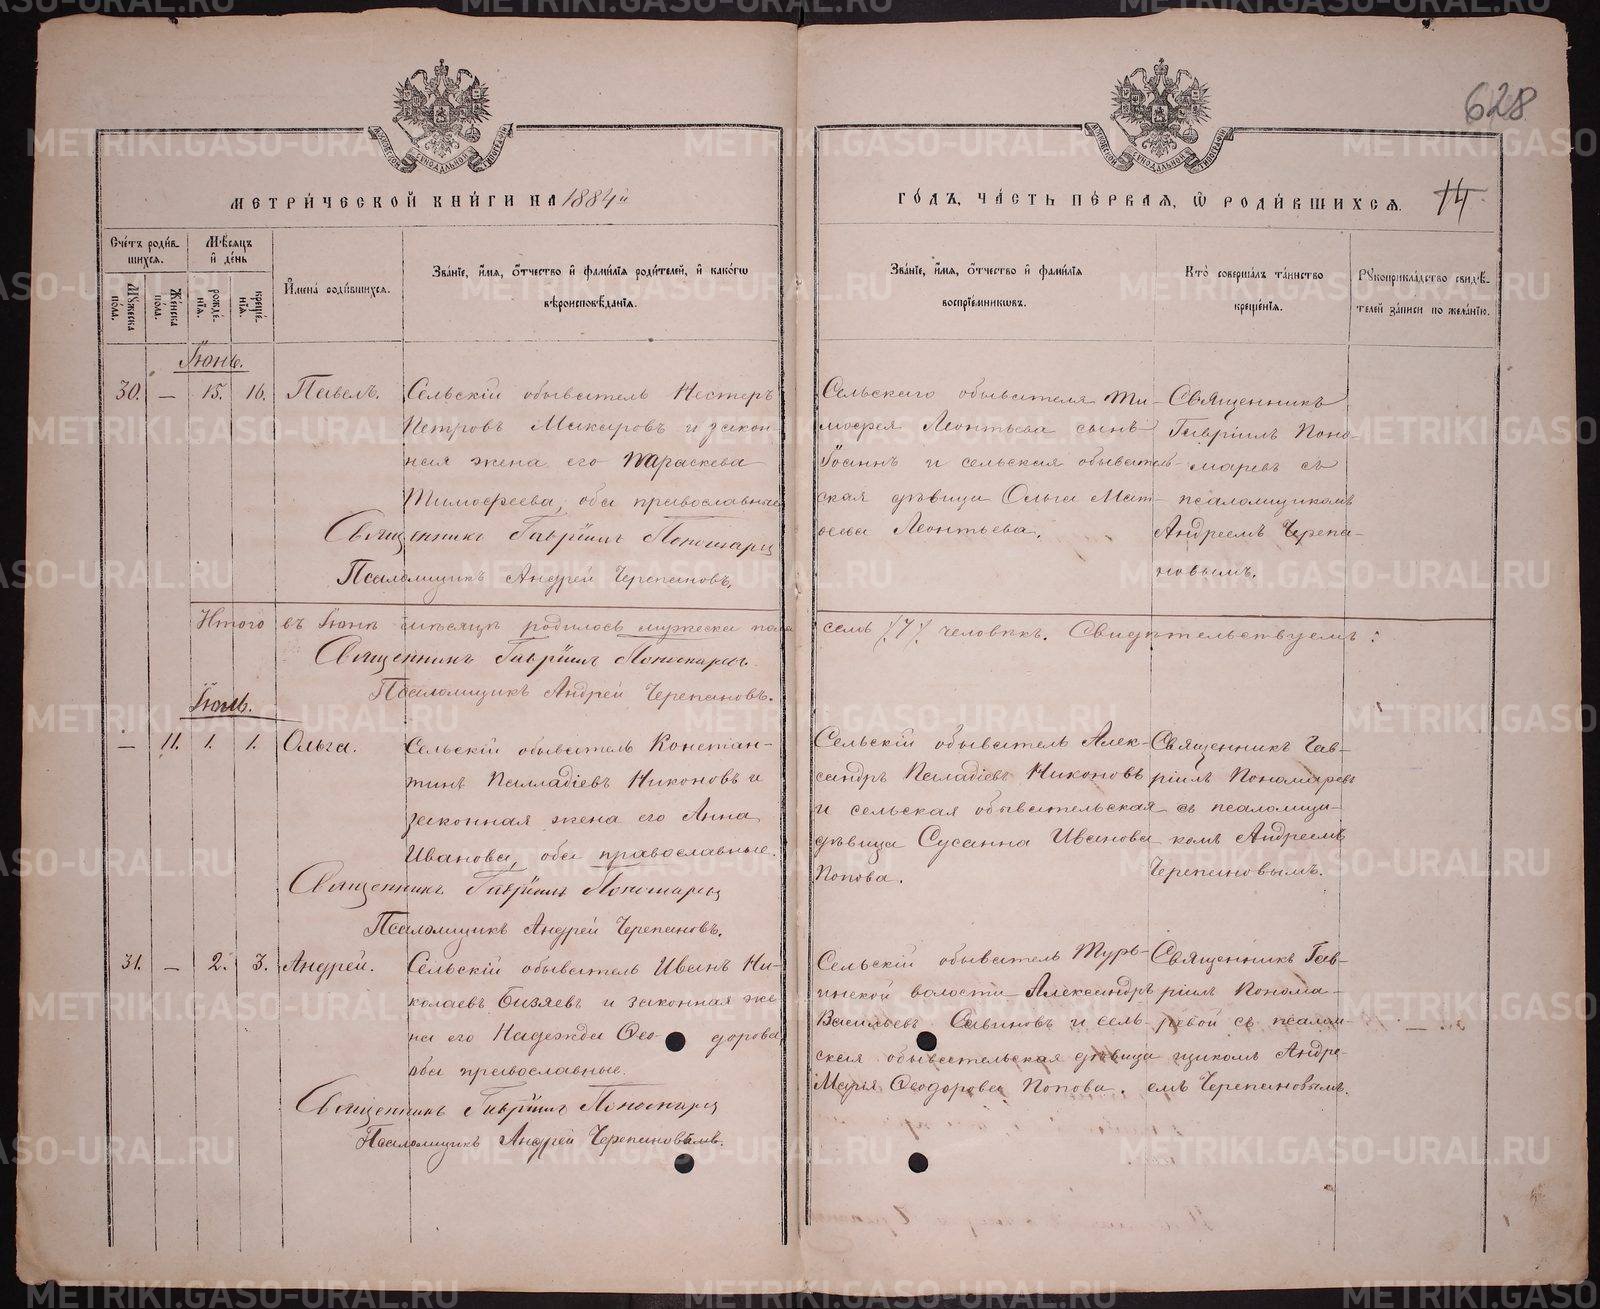 628
МЕТРИ́ЧЕСКОЙ КНИ́ГИ НА 1884й
ГО́ДЪ, ЧА́СТЬ ПЕ́РВАЯ, Ѿ РОДИ́ВШИХСЯ. 14
Сче́тъ роди́вшихся.
Мѣ́сяцъ и де́нь
Имена̀ роди́вшихся.
Зва́нїе, и́мя, ѻ́тчество и фами́лїя роди́телей, и како́гѡ вѣроисповѣ́данїя.
Му́жеска по́ла.
Же́нска по́ла.
рожде́нїя.
креще́нїя.
Зва́нїе, и́мя, ѻ́тчество и фами́лїя воспрїе́мникѡвъ.
Кто̀ соверша́лъ та́инство креще́нїя.
Рꙋкоприкла́дство свидѣ́телей за́писи по жела́нїю.
Іюнь.
30. — 15. 16. Павелъ.
Сельскій обыватель Нестеръ
Петровъ Макаровъ и закон-
ная жена его Параскева
Тимофеева, оба православные
Священникъ Гавріилъ Пономаревъ
Псаломщикъ Андрей Черепановъ.
Сельскаго обывателя Ти-
мофея Леонтьева сынъ
Іоаннъ и сельская обыватель-
ская дѣвица Ольга Мат-
ѳеева Леонтьева.
Священникъ
Гавріилъ Поно-
маревъ съ
псаломщикомъ
Андреемъ Черепа-
новымъ.
Итого въ Іюнѣ мѣсяцѣ родилось мужеска пола семь /7/ человѣкъ. Свидѣтельствуемъ:
Священникъ Гавріилъ Пономаревъ.
Псаломщикъ Андрей Черепановъ.
Іюль.
— 11. 1. 1. Ольга.
Сельскій обыватель Констан-
тинъ Палладіевъ Никоновъ и
законная жена его Анна
Иванова, оба православные.
Священникъ Гавріилъ Пономаревъ
Псаломщикъ Андрей Черепановъ.
Сельскій обыватель Алек-
сандръ Паладіевъ Никоновъ
и сельская обывательская
дѣвица Сусанна Иванова
Попова.
Священникъ Гав-
ріилъ Пономаревъ
съ псаломщи-
комъ Андреемъ
Черепановымъ.
31. — 2. 3. Андрей.
Сельскій обыватель Иванъ Ни-
колаевъ Бизяевъ и законная же-
на его Надежда Ѳео дорова
оба православные.
Священникъ Гавріилъ Пономаревъ
Псаломщикъ Андрей Черепановымъ.
Сельскій обыватель Турь-
инской волости Александръ
Васильевъ Савиновъ и сель-
ская обывательская дѣвица
Марья Ѳеодорова Попова.
Священникъ Гав-
ріилъ Понома-
ревой съ псалом-
щикомъ Андре-
емъ Черепановымъ.
METRIKI.GASO-URAL.RU